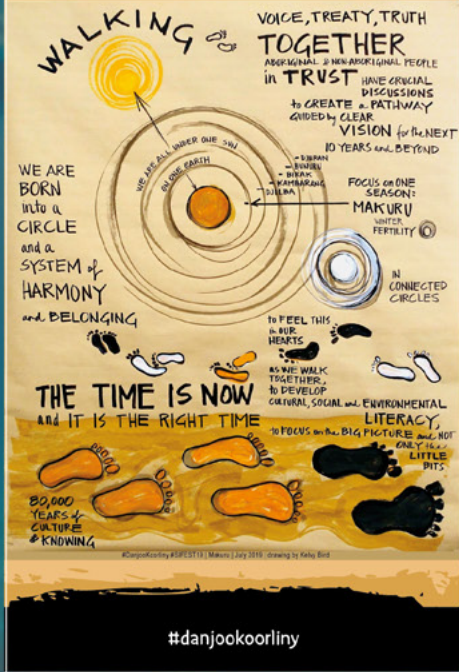 WALKING
VOICE, TREATY, TRUTH
TOGETHER
ABORIGINAL & NON-ABORIGINAL PEOPLE
in TRUST HAVE CRUCIAL
DISCUSSIONS
to CREATE a PATHWAY
GUIDED by CLEAR
VISION for the NEXT
10 YEARS and BEYOND
WE ARE ALL UNDER ONE SUN
ON ONE EARTH
- DJERAN
- BUNURU
- BIRAK
- KAMBARANG
- DJILBA
FOCUS on ONE
SEASON:
MAKURU
WINTER
FERTILITY
WE ARE
BORN
into a
CIRCLE
and a
SYSTEM of
HARMONY
and BELONGING
IN
CONNECTED
CIRCLES
to FEEL THIS
in OUR
HEARTS
AS WE WALK
TOGETHER,
to DEVELOP
CULTURAL, SOCIAL and ENVIRONMENTAL
LITERACY,
to FOCUS on the BIG PICTURE and NOT
ONLY the
LITTLE
BITS
THE TIME IS NOW
and IT IS THE RIGHT TIME
80,000
YEARS of
CULTURE
& KNOWING
#DanjooKoorliny #SIFEST19 | Makuru | July 2019 : drawing by Kelvy Bird
#danjookoorliny